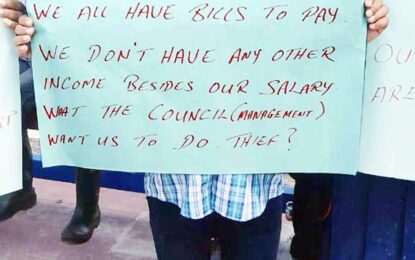 WE ALL HAVE BILLS TO PAY.
WE DON'T HAVE ANY OTHER
INCOME BESIDES OUR SALARY.
WHAT THE COUNCIL (MANAGEMENT)
WANT US TO DO. THIEF?
OU
ARE